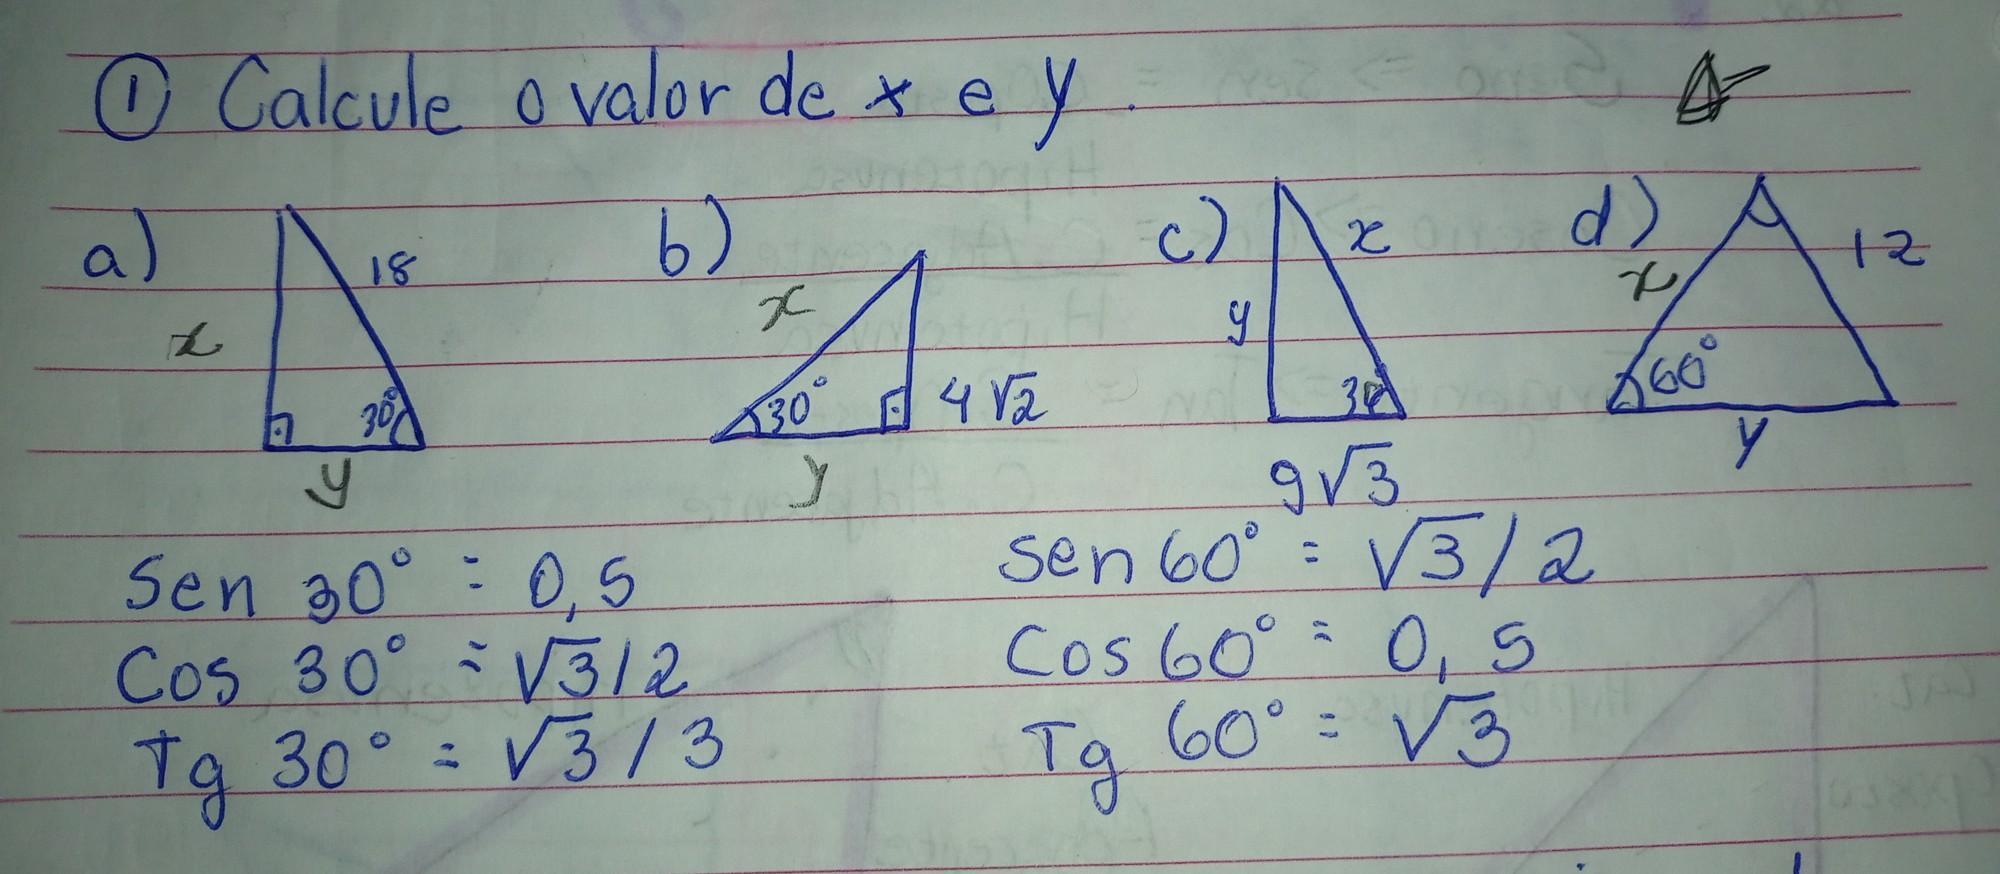 ① Calcule o valor de x e y.
a) 18 x 30° y
b) x 30° 4√2 y
c) x y 30° 9√3
d) 12 x 60° y
Sen 30° = 0,5
Cos 30° = √3/2
Tg 30° = √3/3
Sen 60° = √3/2
Cos 60° = 0,5
Tg 60° = √3